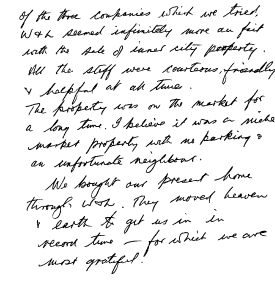 Of the three companies which we tried,
W&H seemed infinitely more au fait
with the sale of inner city property.
All the staff were courteous, friendly
& helpful at all times.
The property was on the market for
a long time. I believe it was a niche
market property with no parking &
an unfortunate neighbour.
We bought our present home
through W&H. They moved heaven
& earth to get us in in
record time – for which we are
most grateful.